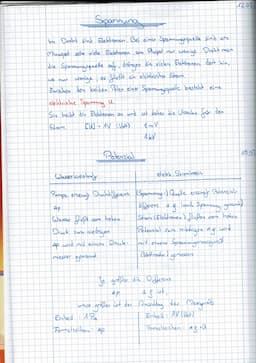 12.01
Spannung
Im Draht sind Elektronen. Bei einer Spannungsquelle sind am
Minuspol sehr viele Elektronen, am Pluspol nur wenige. Dreht man
die Spannungsquelle auf, drängen die vielen Elektronen dort hin,
wo nur wenige, es fließt ein elektrischer Strom.
Zwischen den beiden Polen einer Spannungsquelle besteht eine
elektrische Spannung U.
Sie treibt die Elektronen an und ist daher die Ursache für den
Strom. [U] = 1V (Volt) 1mV
1kV
Potenzial
Wasserkreislauf
elektr. Stromkreis
Pumpe erzeugt Druckdifferenz
Δp
(Spannungs-) Quelle erzeugt Potenzial-
differenz Δφ (auch Spannung genannt)
Wasser fließt vom hohen
Druck zum niedrigen
Strom (Elektronen) fließen vom hohen
Potenzial zum niedrigen φ
Δp wird mit einem Druck-
messer gemessen
mit einem Spannungsmessgerät
Je größer die Differenz
Δp Δφ ist,
umso größer ist der Ausschlag des Messgeräts
Einheit: 1Pa
Einheit: 1V (Volt)
Formelzeichen: Δp
Formelzeichen: Δφ